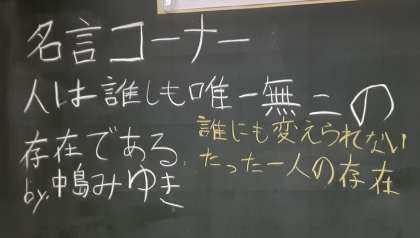 名言コーナー
人は誰しも唯一無二の
存在である.
by.中島みゆき
誰にも変えられない
たった一人の存在